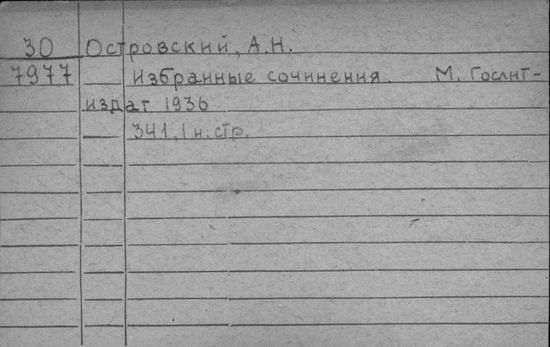 30 Островский, А.Н.
7977 Избранные сочинения. М. Гослит-
издат 1936
341, 1 н. стр.